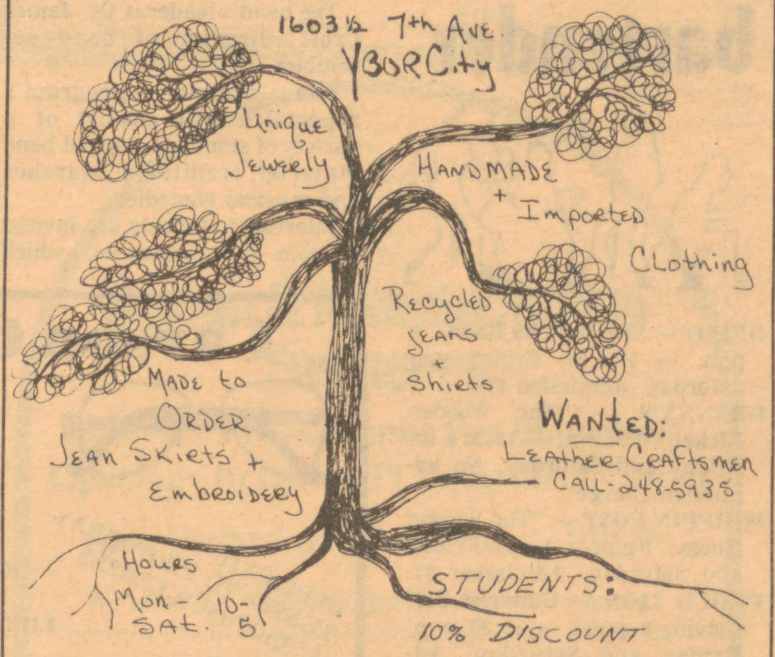 1603½ 7th Ave.
YBOR City
Unique
Jewerly
HANDMADE
+
Imported
Clothing
Recycled
jeans
+
Shirts
MADE to
ORDER
Jean Skirts +
Embroidery
WANTED:
Leather Craftsmen
CALL-248-5935
Hours
Mon- 10-
SAT. 5
STUDENTS:
10% DISCOUNT